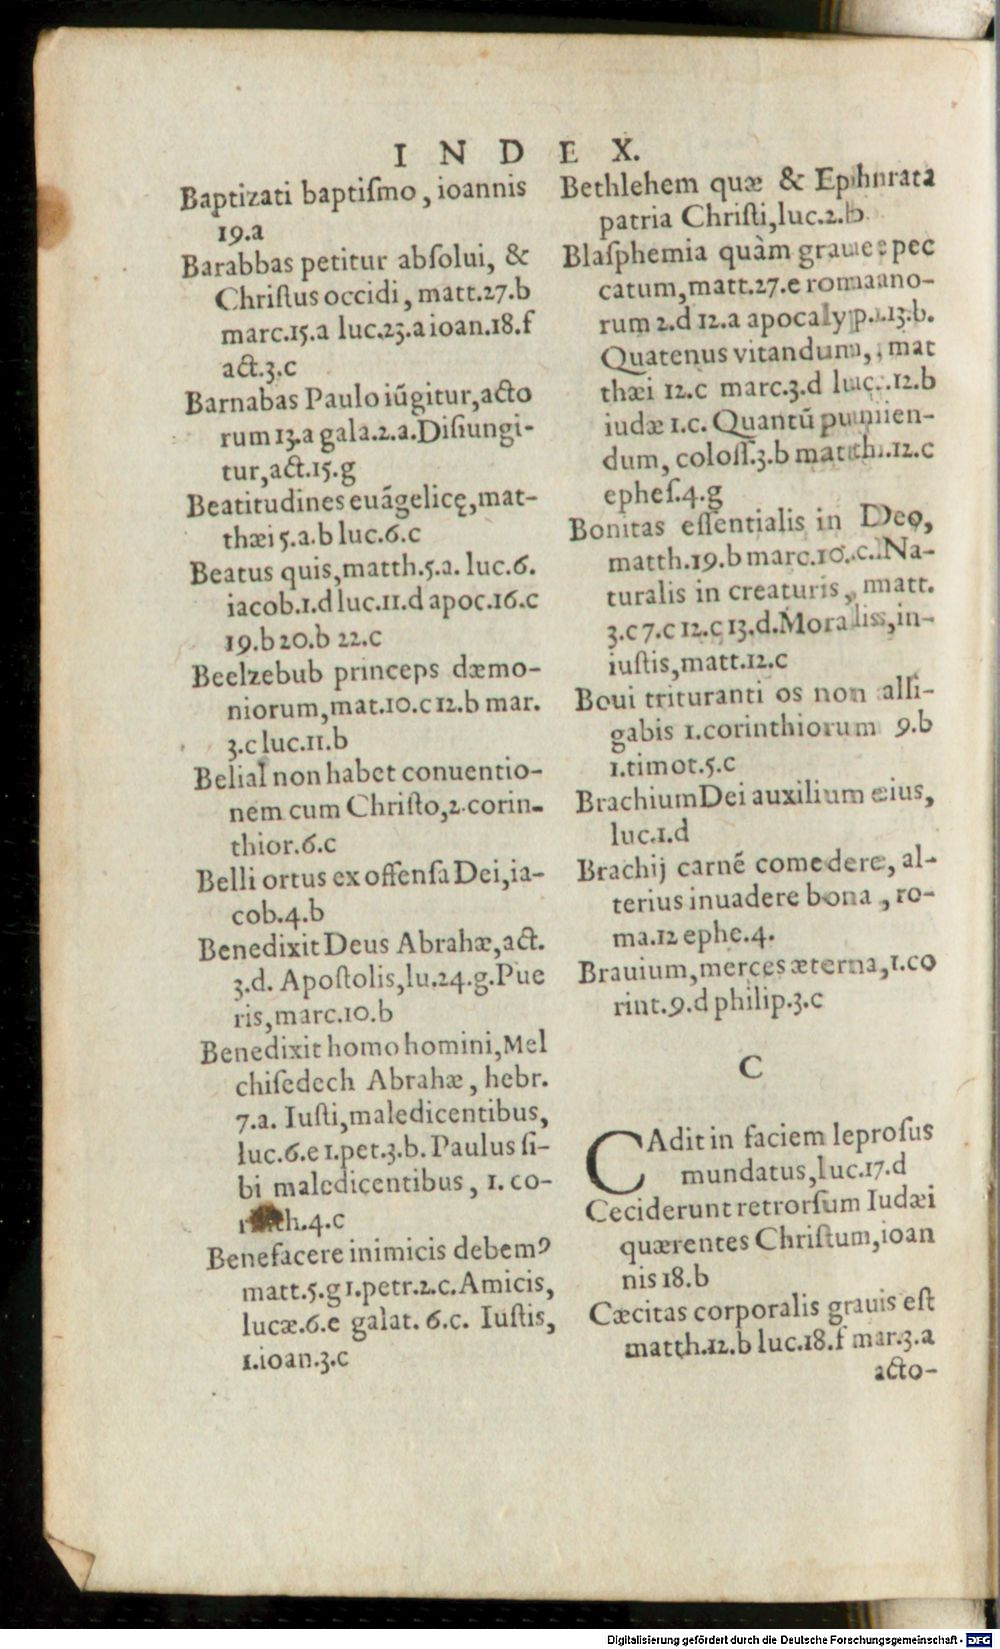 INDEX.
Baptizati baptiſmo, ioannis
19.a
Barabbas petitur abſolui, &
Chriſtus occidi, matt.27.b
marc.15.a luc.23.a ioan.18.f
act.3.c
Barnabas Paulo iũgitur, acto
rum 13.a gala.2.a. Diſiungi-
tur, act.15.g
Beatitudines euãgelicę, mat-
thæi 5.a.b luc.6.c
Beatus quis, matth.5.a. luc.6.
iacob.1.d luc.11.d apoc.16.c
19.b 20.b 22.c
Beelzebub princeps dæmo-
niorum, mat.10.c 12.b mar.
3.c luc.11.b
Belial non habet conuentio-
nem cum Chriſto, 2.corin-
thior.6.c
Belli ortus ex offenſa Dei, ia-
cob.4.b
Benedixit Deus Abrahæ, act.
3.d. Apoſtolis, lu.24.g. Pue
ris, marc.10.b
Benedixit homo homini, Mel
chiſedech Abrahæ, hebr.
7.a. Iuſti, maledicentibus,
luc.6.e 1.pet.3.b. Paulus ſi-
bi maledicentibus, 1. co-
th.4.c
Benefacere inimicis debemꝰ
matt.5.g 1.petr.2.c. Amicis,
lucæ.6.e galat. 6.c. Iuſtis,
1.ioan.3.c
Bethlehem quæ & Ephrata
patria Chriſti, luc.2.b
Blaſphemia quàm graue pec
catum, matt.27.e romano-
rum 2.d 12.a apocalyp.13.b.
Quatenus vitandum, mat
thæi 12.c marc.3.d luc.12.b
iudæ 1.c. Quantũ punien-
dum, coloſſ.3.b matth.12.c
epheſ.4.g
Bonitas eſſentialis in Deo,
matth.19.b marc.10.c. Na-
turalis in creaturis, matt.
3.c 7.c 12.c 13.d. Moralis, in-
iuſtis, matt.12.c
Boui trituranti os non alli-
gabis 1.corinthiorum 9.b
1.timot.5.c
Brachium Dei auxilium eius,
luc.1.d
Brachij carnẽ comedere, al-
terius inuadere bona, ro-
ma.12 ephe.4.
Brauium, merces æterna, 1.co
rint.9.d philip.3.c
C
CAdit in faciem leproſus
mundatus, luc.17.d
Ceciderunt retrorſum Iudæi
quærentes Chriſtum, ioan
nis 18.b
Cæcitas corporalis grauis eſt
matth.12.b luc.18.f mar.3.a
acto-
Digitalisierung gefördert durch die Deutsche Forschungsgemeinschaft - DFG